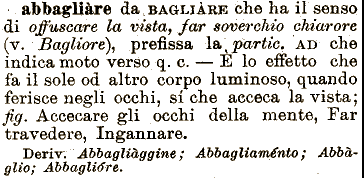 abbagliàre da BAGLIÀRE che ha il senso
di offuscare la vista, far soverchio chiarore
(v. Bagliore), prefissa la partic. AD che
indica moto verso q. c. — È lo effetto che
fa il sole od altro corpo luminoso, quando
ferisce negli occhi, sí che acceca la vista;
fig. Accecare gli occhi della mente, Far
travedere, Ingannare.
Deriv. Abbagliàggine; Abbagliaménto; Abbà-
glio; Abbaglióre.